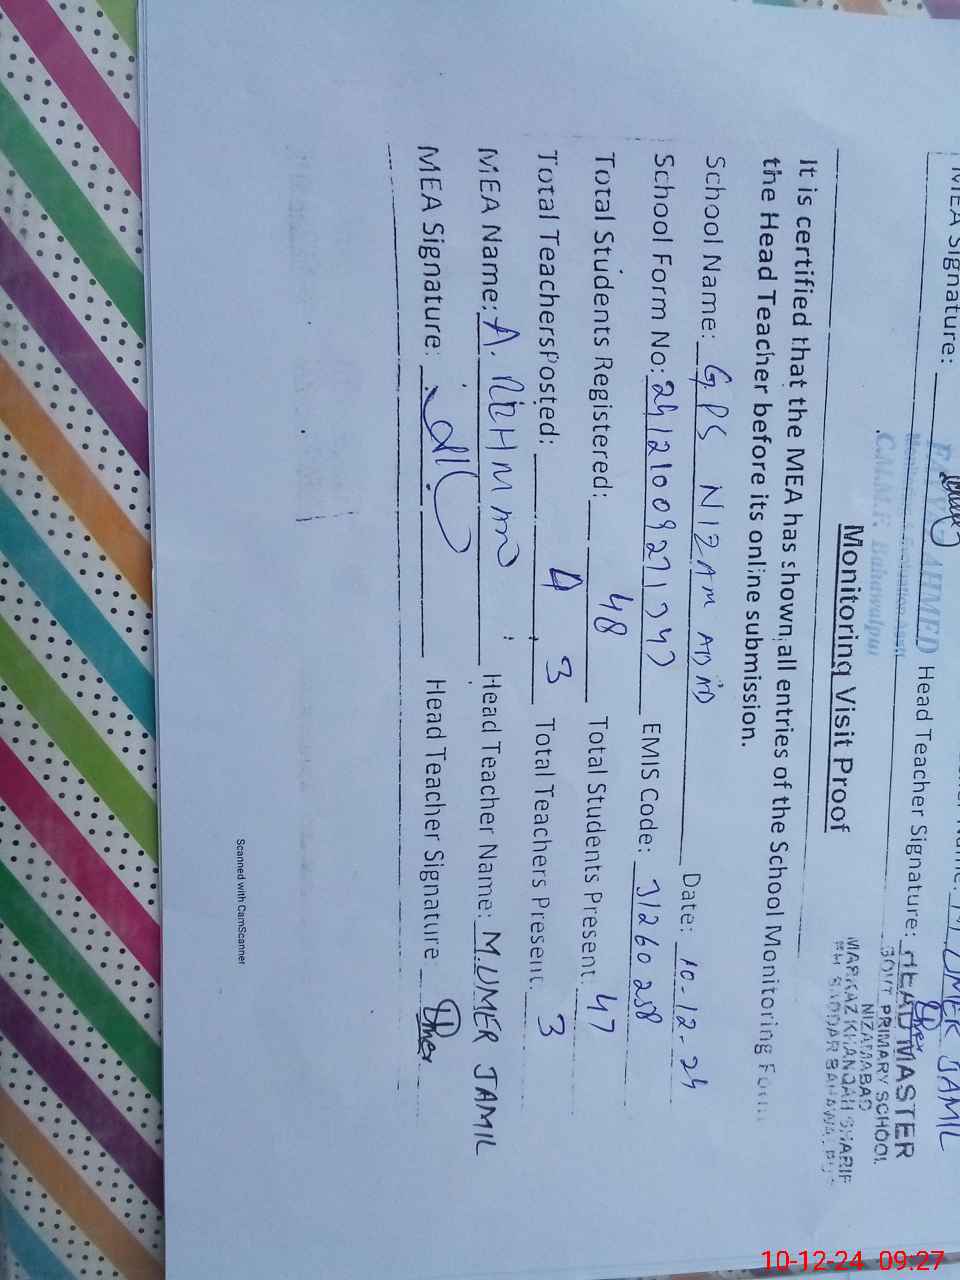 MEA Signature: Head Teacher Signature: Umer
M UMER JAMIL
AHMED
C.M.M.F. Bahawalpur
HEAD MASTER
GOVT PRIMARY SCHOOL
NIZAMABAD
MARKAZ KHANQAH SHARIF
SADDAR BAHAWALPUR
Monitoring Visit Proof
It is certified that the MEA has shown all entries of the School Monitoring Form
the Head Teacher before its online submission.
School Name: GPS NIZAM Date: 10-12-24
School Form No: EMIS Code: 31260288
Total Students Registered: 48 Total Students Present: 47
Total Teachers Posted: 4 3 Total Teachers Present: 3
MEA Name: Head Teacher Name: M.UMER JAMIL
MEA Signature: Head Teacher Signature Umer
Scanned with CamScanner
10-12-24 09:27